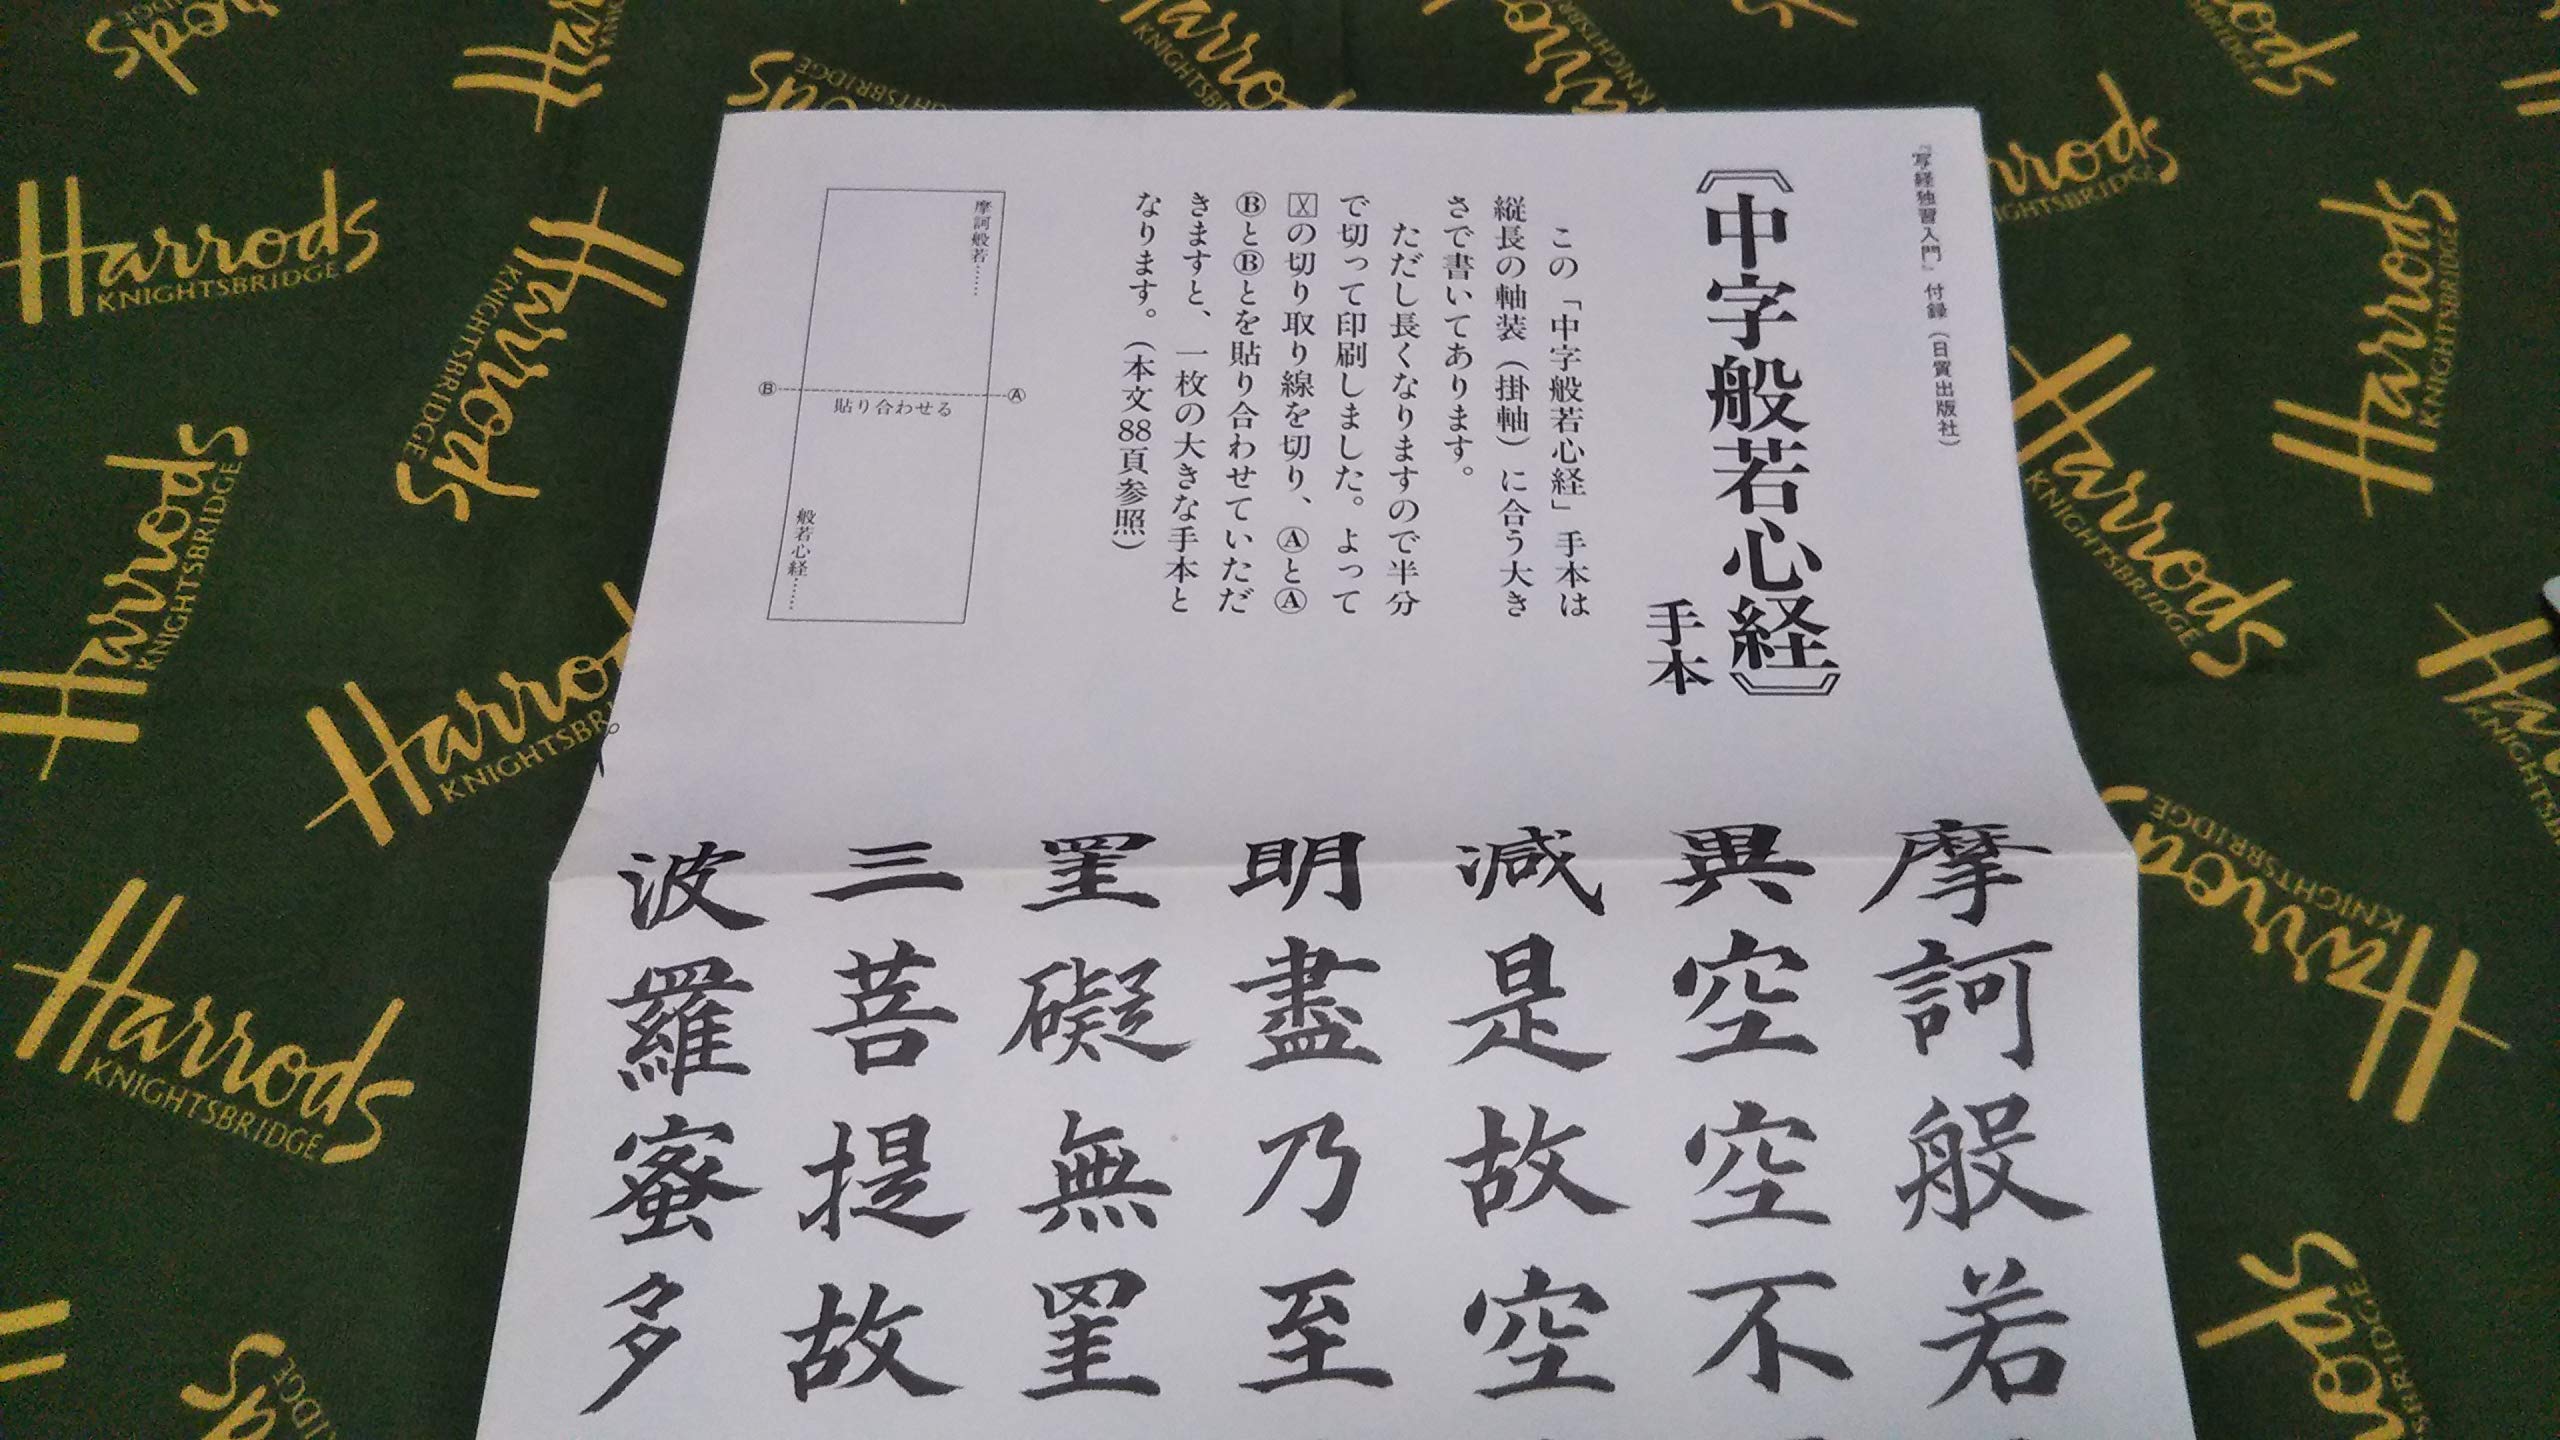 『写経独習入門』付録(日貿出版社)
〘中字般若心経〙
手本
この「中字般若心経」手本は
縦長の軸装(掛軸)に合う大き
さで書いてあります。
ただし長くなりますので半分
で切って印刷しました。よって
の切り取り線を切り、ⒶとⒶ
ⒷとⒷとを貼り合わせていただ
きますと、一枚の大きな手本と
なります。(本文88頁参照)
摩訶般若……
Ⓑ Ⓐ
貼り合わせる
般若心経……
摩訶般若
異空空不
減是故空
明盡乃至
罣礙無罣
三菩提故
波羅蜜多
Harrods
KNIGHTSBRIDGE
Harrods
KNIGHTSBRIDGE
Harrods
KNIGHTSBRIDGE
Harrods
KNIGHTSBRIDGE
Harrods
KNIGHTSBRIDGE
Harrods
KNIGHTSBRIDGE
Harrods
KNIGHTSBRIDGE
Harrods
KNIGHTSBRIDGE